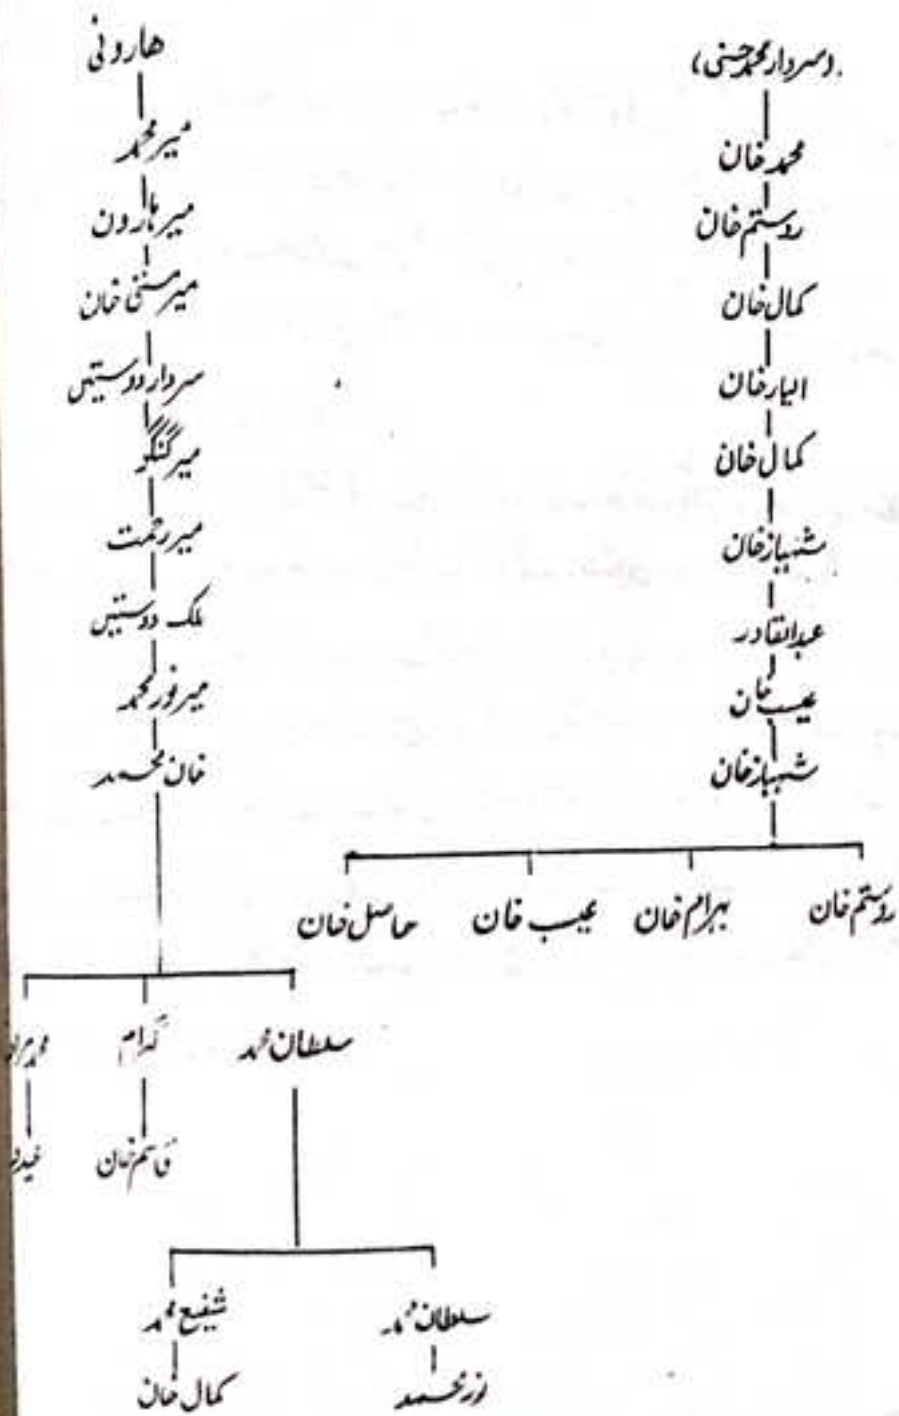 (سردار محمد حسنی)
محمد خان
روستم خان
کمال خان
الیار خان
کمال خان
شہباز خان
عبدالقادر
عیب خان
شہباز خان
روستم خان
بہرام خان
عیب خان
حاصل خان
ھارونی
میر محمد
میر ہارون
میر خان
سردار دوستیں
میر گنگو
میر رحمت
ملک دوستیں
میر نور محمد
خان محمد
سلطان محمد
قاسم خان
سلطان محمد
شفیع محمد
نور محمد
کمال خان